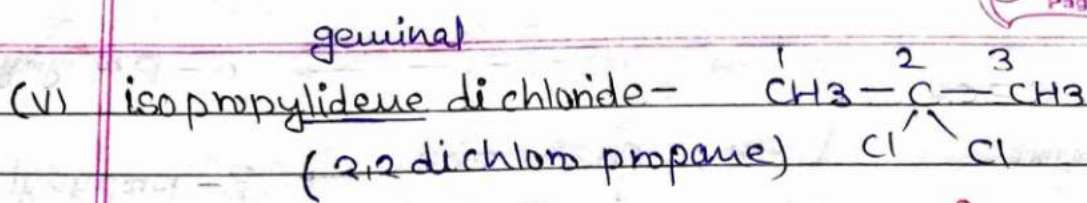 geminal
(V) isopropylidene dichloride- CH3 - C - CH3
1 2 3
(2,2 dichloro propane) Cl Cl